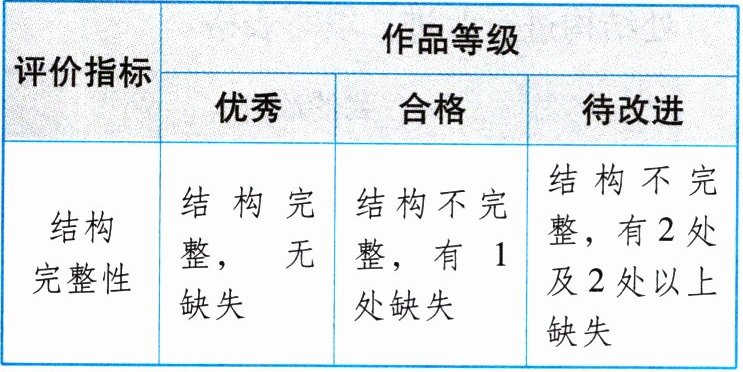 评价指标
作品等级
优秀
合格
待改进
结构
完整性
结构完
整，无
缺失
结构不完
整，有1
处缺失
结构不完
整，有2处
及2处以上
缺失